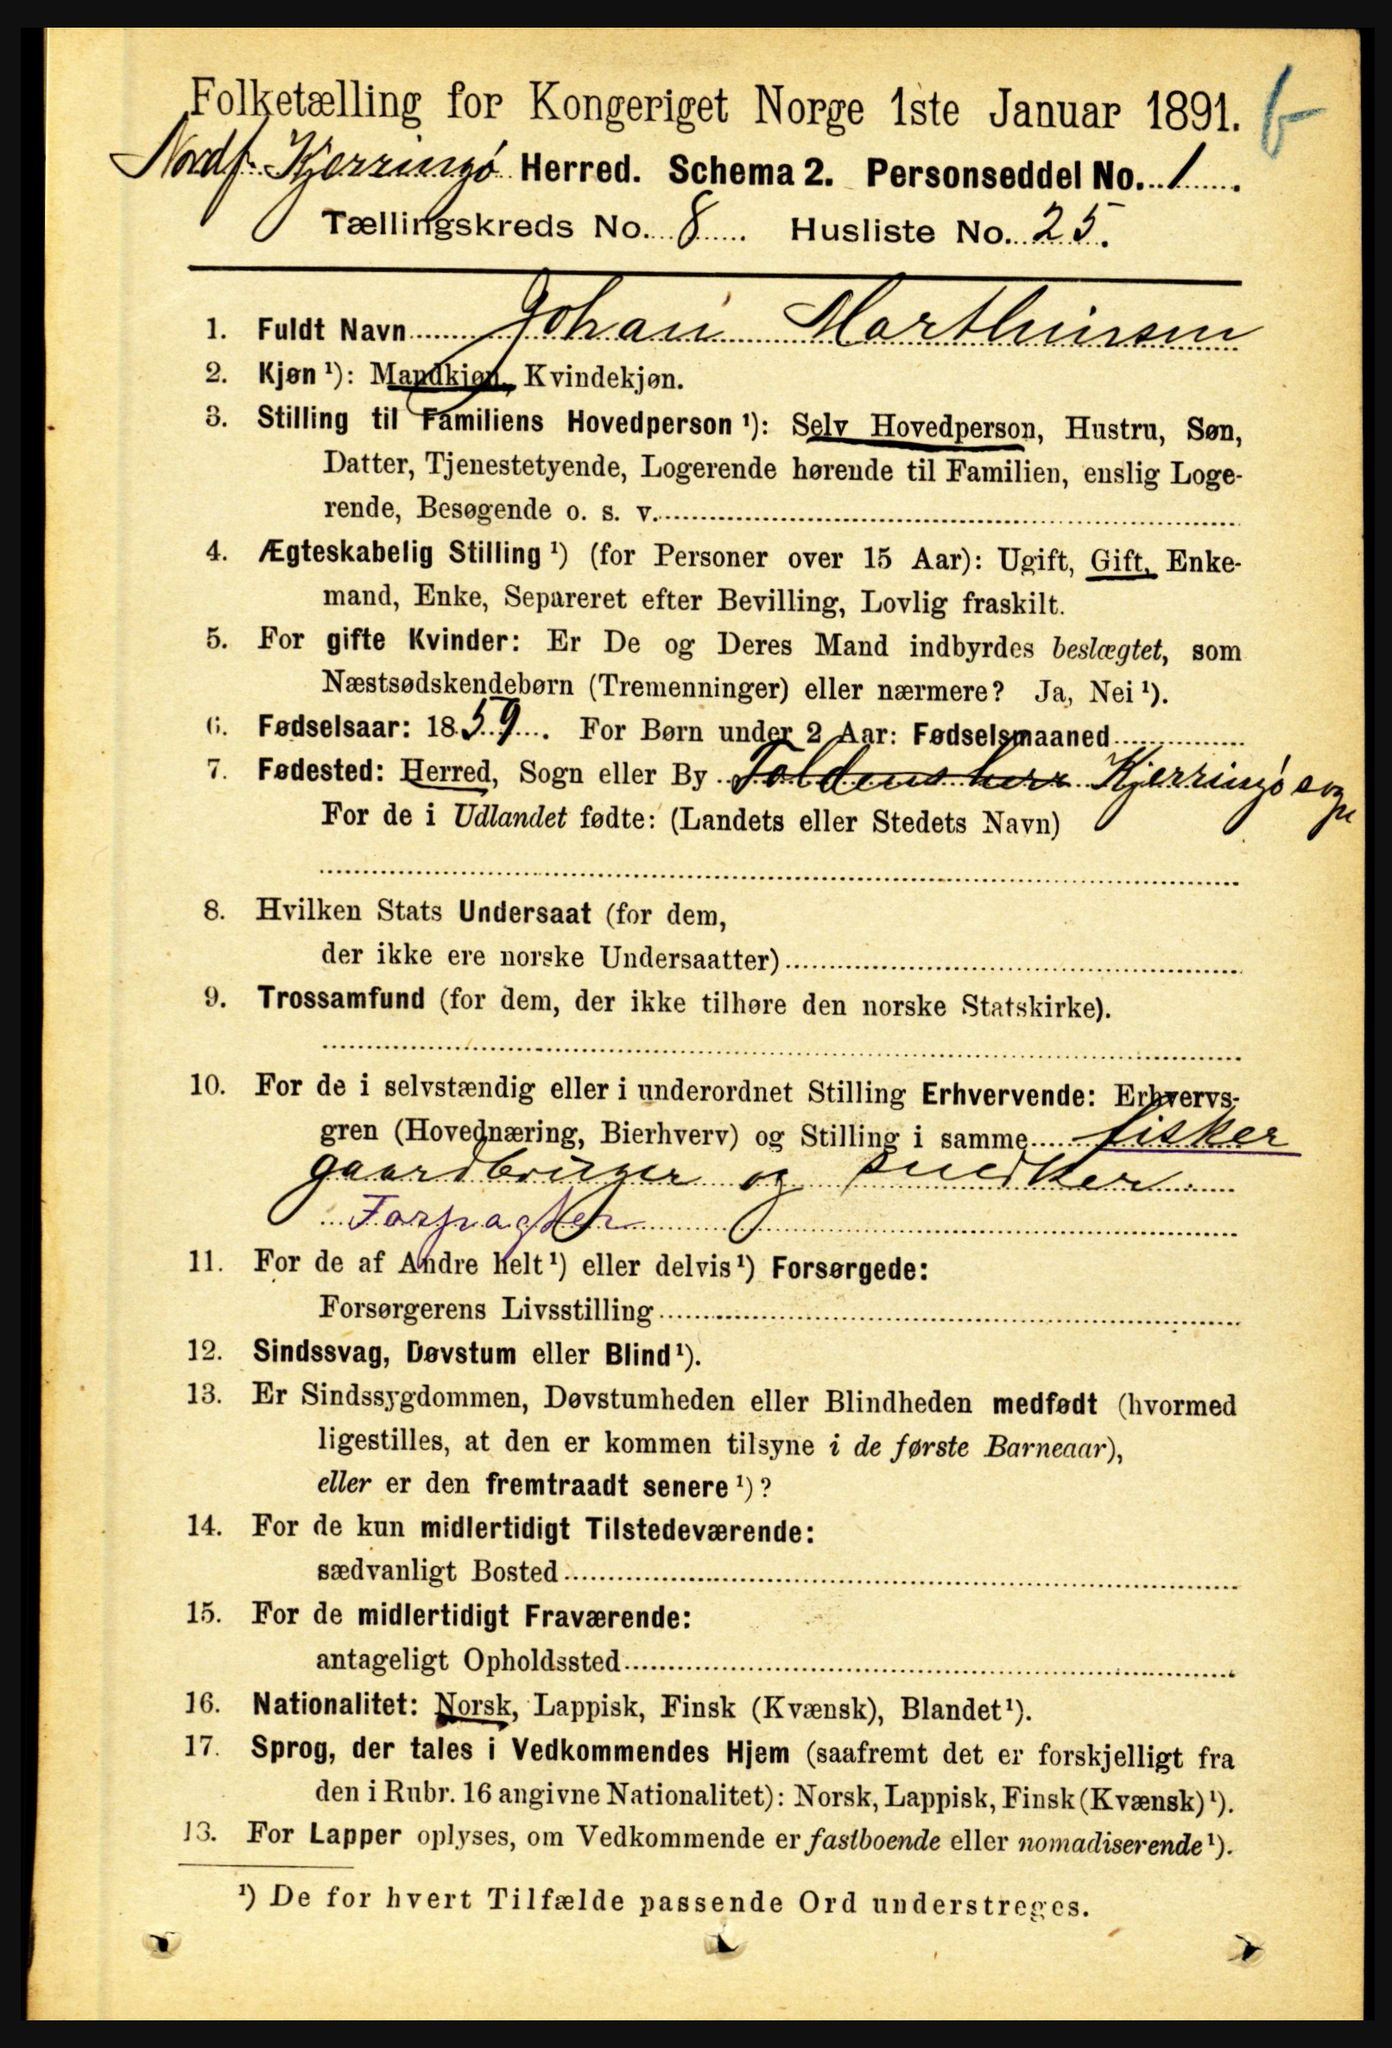 Folketælling for Kongeriget Norge 1ste Januar 1891. 6
Nordf. Kjerringø Herred. Schema 2. Personseddel No. 1.
Tællingskreds No. 8. Husliste No. 25.
1. Fuldt Navn Johan Marthinsen
2. Kjøn ¹): Mandkjøn, Kvindekjøn.
3. Stilling til Familiens Hovedperson ¹): Selv Hovedperson, Hustru, Søn,
Datter, Tjenestetyende, Logerende hørende til Familien, enslig Loge-
rende, Besøgende o. s. v.
4. Ægteskabelig Stilling ¹) (for Personer over 15 Aar): Ugift, Gift, Enke-
mand, Enke, Separeret efter Bevilling, Lovlig fraskilt.
5. For gifte Kvinder: Er De og Deres Mand indbyrdes beslægtet, som
Næstsødskendebørn (Tremenninger) eller nærmere? Ja, Nei ¹).
6. Fødselsaar: 1859. For Børn under 2 Aar: Fødselsmaaned
7. Fødested: Herred, Sogn eller By Foldens herr Kjerringø sogn
For de i Udlandet fødte: (Landets eller Stedets Navn)
8. Hvilken Stats Undersaat (for dem,
der ikke ere norske Undersaatter)
9. Trossamfund (for dem, der ikke tilhøre den norske Statskirke).
10. For de i selvstændig eller i underordnet Stilling Erhvervende: Erhvervs-
gren (Hovednæring, Bierhverv) og Stilling i samme fisker
gaardbruger og snedker.
Forpagter
11. For de af Andre helt ¹) eller delvis ¹) Forsørgede:
Forsørgerens Livsstilling
12. Sindssvag, Døvstum eller Blind ¹).
13. Er Sindssygdommen, Døvstumheden eller Blindheden medfødt (hvormed
ligestilles, at den er kommen tilsyne i de første Barneaar),
eller er den fremtraadt senere ¹)?
14. For de kun midlertidigt Tilstedeværende:
sædvanligt Bosted
15. For de midlertidigt Fraværende:
antageligt Opholdssted
16. Nationalitet: Norsk, Lappisk, Finsk (Kvænsk), Blandet ¹).
17. Sprog, der tales i Vedkommendes Hjem (saafremt det er forskjelligt fra
den i Rubr. 16 angivne Nationalitet): Norsk, Lappisk, Finsk (Kvænsk) ¹).
13. For Lapper oplyses, om Vedkommende er fastboende eller nomadiserende ¹).
¹) De for hvert Tilfælde passende Ord understreges.